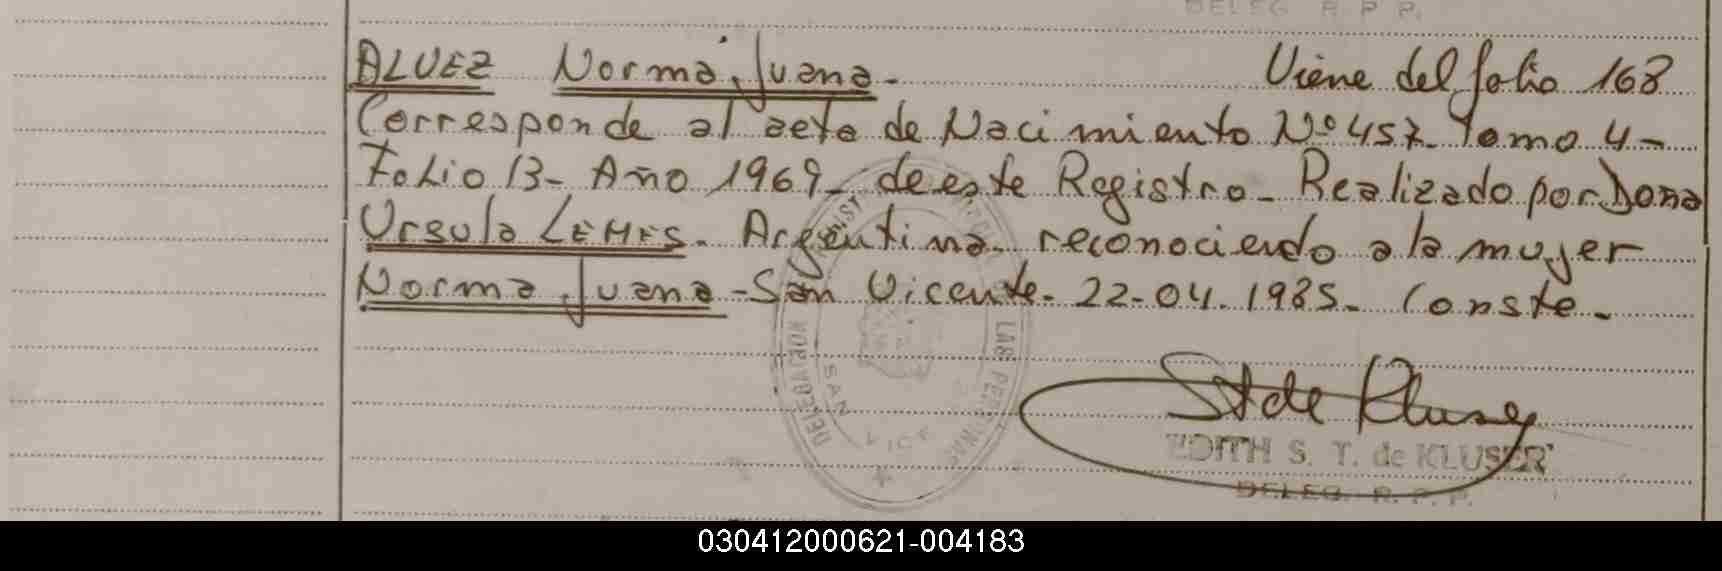 DELEG. R. P. P.
ALVEZ Norma Juana.- Viene del folio 168
Corresponde al acta de Nacimiento Nº 457. Tomo 4-
Folio 13- Año 1969- de este Registro- Realizado por Dona
Ursula LEMES. Argentina. reconociendo a la mujer
Norma Juana - San Vicente. 22-04. 1985. Conste.
DELEGACION LAS PERSONAS
SAN VICE
St de Kluser
EDITH S. T. de KLUSER
DELEG. R. P. P.
030412000621-004183